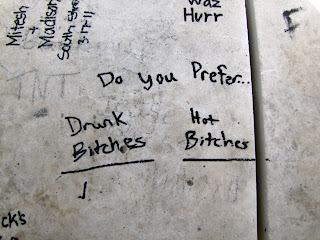 Mitesh
+
Madison
South Stre
3-17-11
Waz
Hurr
F
TNT
Do you Prefer...
Drunk
Bitches
Hot
Bitches
ck's